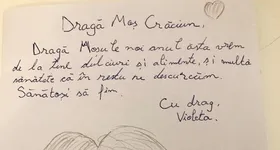 Dragă Moș Crăciun,
Dragă Moșule noi anul asta vrem
de la tine dulciuri și alimente, și multă
sănătate că în rest ne descurcăm.
Sănătoși să fim.
Cu drag,
Violeta.